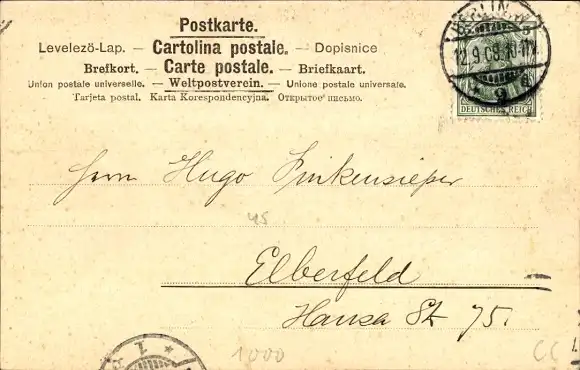 Postkarte.
Levelező-Lap. — Cartolina postale. — Dopisnice
Brefkort. — Carte postale. — Briefkaart.
Union postale universelle. — Weltpostverein. — Unione postale universale.
Tarjeta postal. Karta Korespondencyjna. Открытое письмо.
BERLIN W
12.9.03.10-11V.
9
DEUTSCHES REICH
Herrn Hugo Finkensieper
45
Elberfeld
Hansa St 75.
1
1000
CC